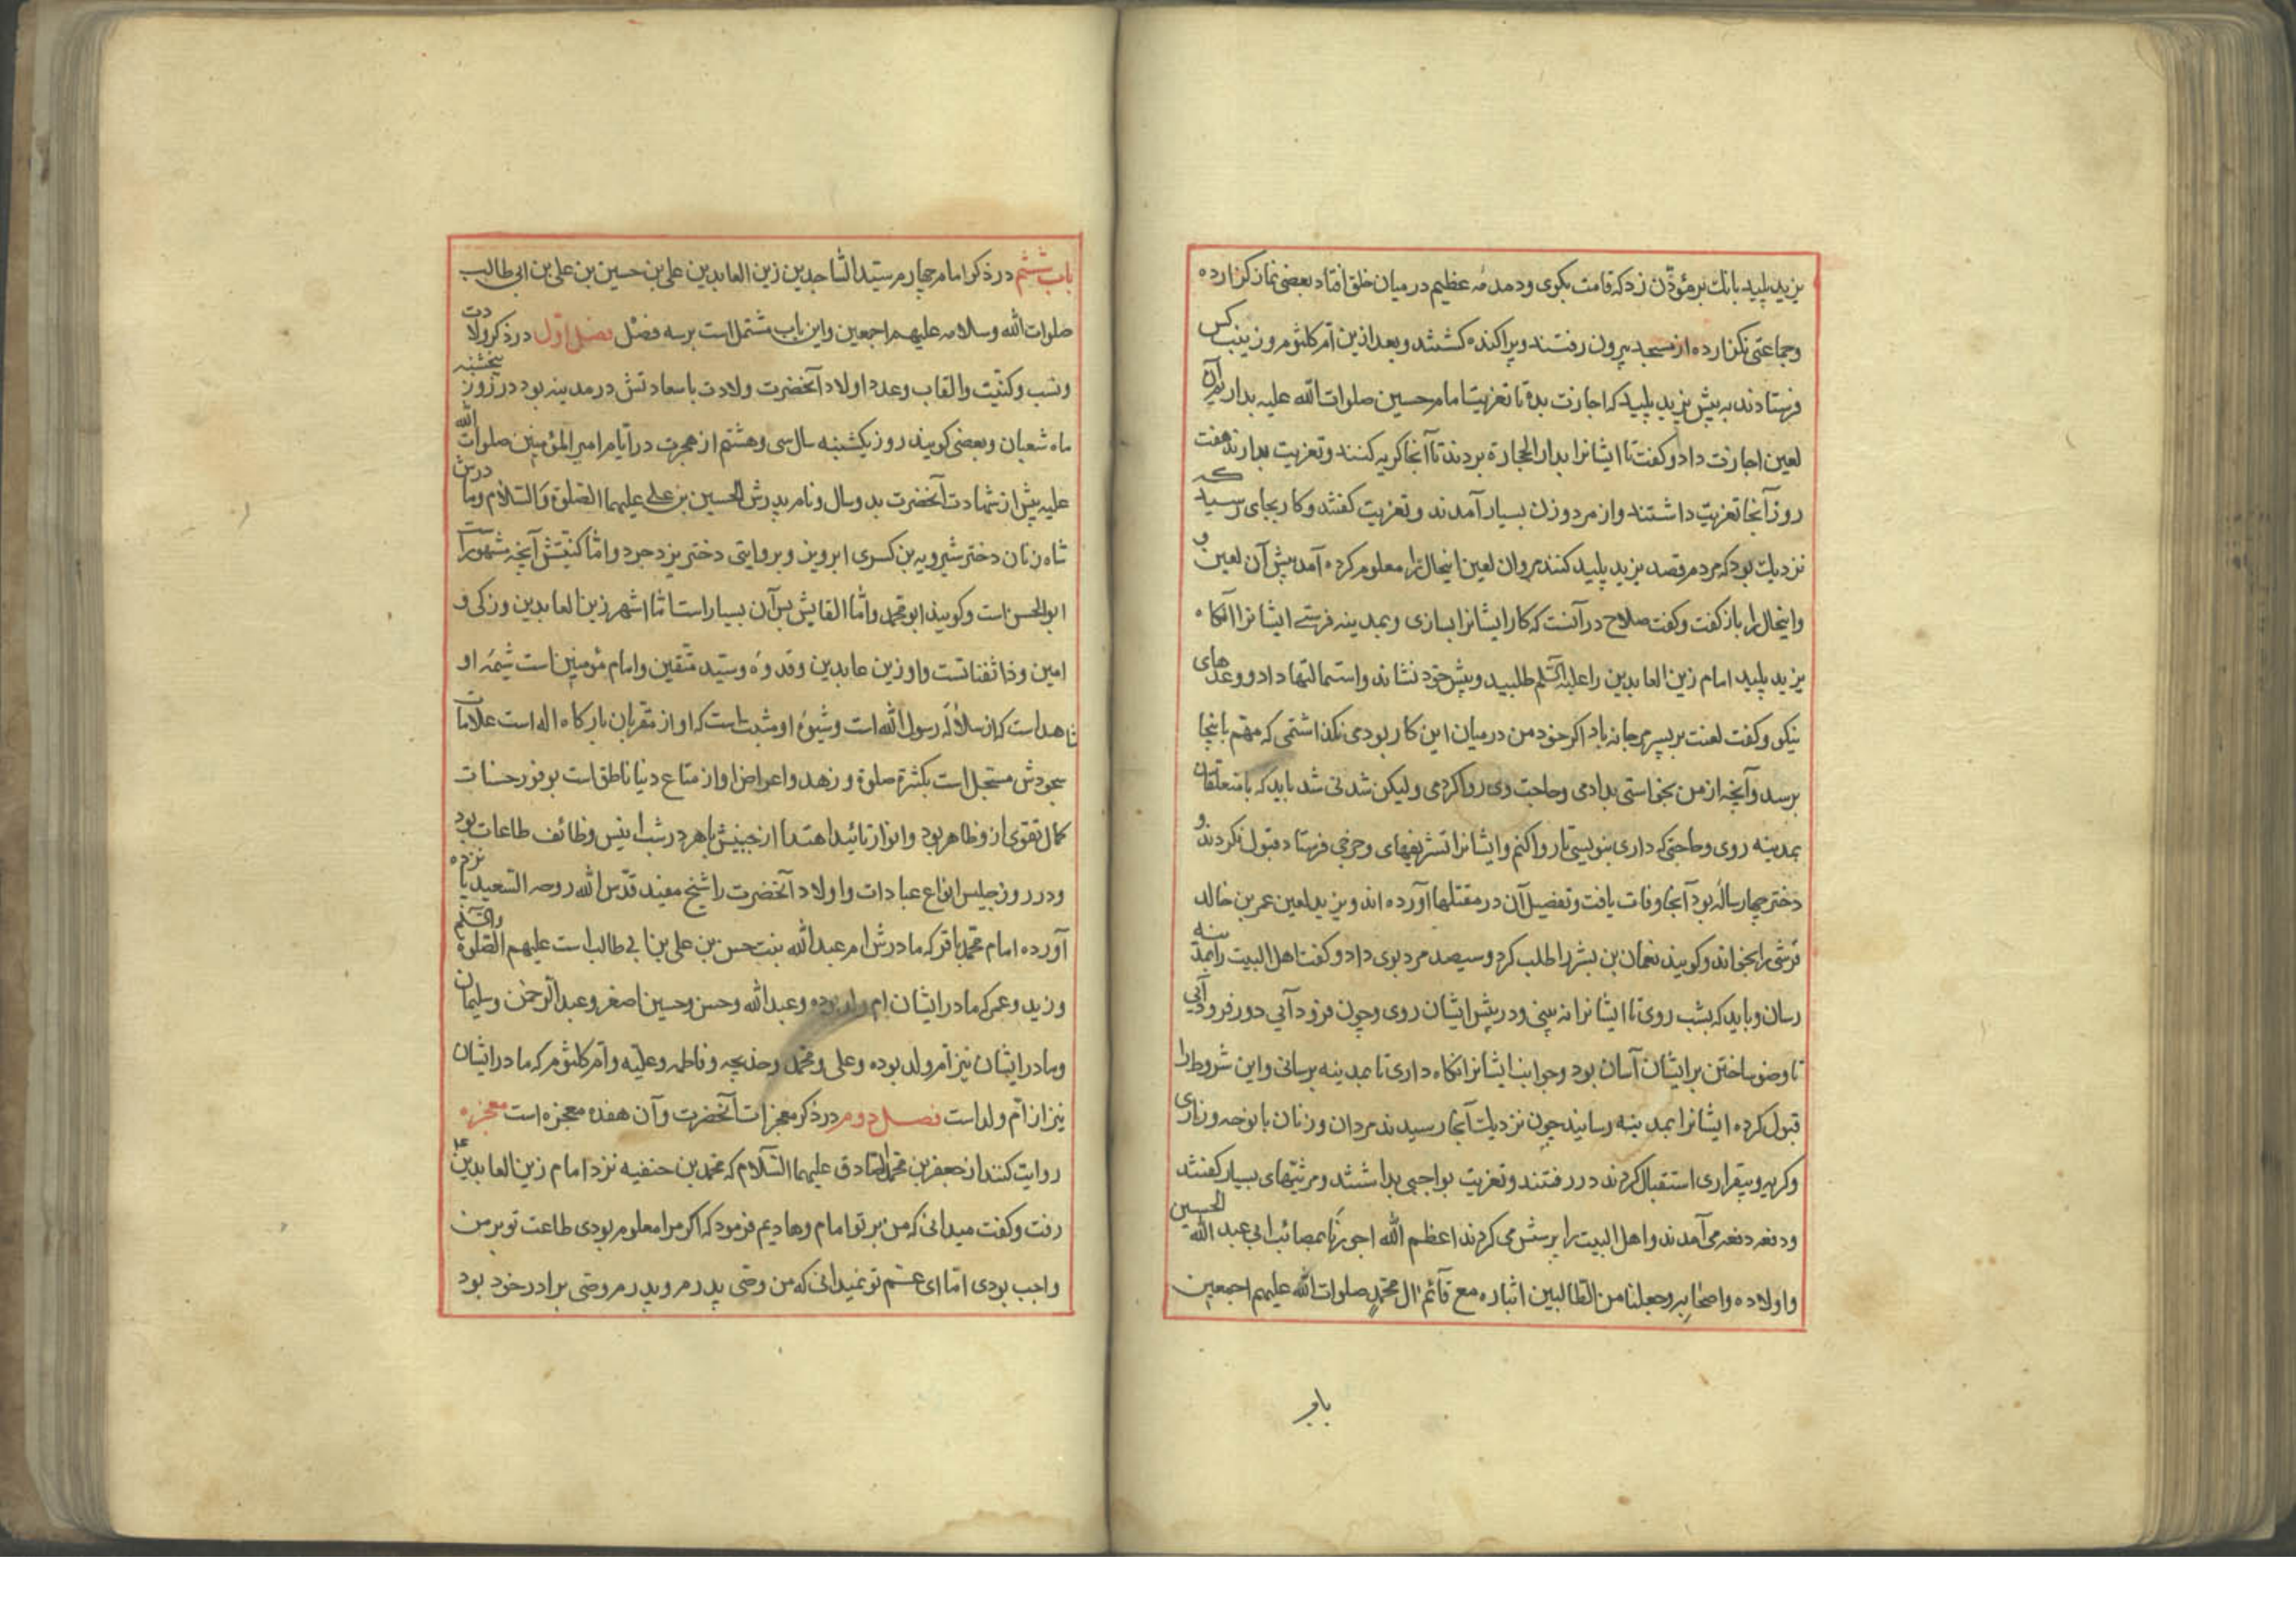 یزید پلید بانک بر مؤذّن زد که قامت بکوی ودمدمهٔ عظیم در میان خلق افتاد بعضی نماز کزارده
وجماعتی نکزارده از مسجد بیرون رفتند وپراکنده کشتند وبعد ازین امّ کلثوم وزینب کس
فرستادند به پیش یزید پلید که اجازت بده تا تعزیت امام حسین صلوات الله علیه بداریم آن
لعین اجازت داد وکفت تا ایشانرا بدار الحجارة بردند تا آنجا کریه کنند وتعزیت بدارند هفت
روز آنجا تعزیت داشتند واز مرد وزن بسیار آمدند وتعزیت کفتند وکار بجای رسید که
نزدیک بود که مردم قصد یزید پلید کنند مروان لعین اینحال را معلوم کرده آمد پیش آن لعین و
واینحال را باز کفت وکفت صلاح در آنست که کار ایشانرا بسازی وبمدینه فرستے ایشانرا آنکاه
یزید پلید امام زین العابدین را علیه السّلم طلبید وپیش خود نشاند واستمالتها داد ووعدهای
نیکو وکفت لعنت بر پسر مرجانه باد اکر خود من در میان این کار بودمی نکذاشتمی که مهّم باینجا
برسد وآنچه از من بخواستی بدادمی وحاجت وی روا کردمی ولیکن شدنی شد باید که با متعلقان
بمدینه روی وحاجتی که داری بنویسی تا روا کنم وایشانرا تشریفهای وخرجی فرستاد قبول نکردند و
دختر چهار ساله بود آنجا وفات یافت وتفضیل آن در مقتلها آورده اند ویزید لعین عمر بن خالد
قرشی را بخواند وکویند نعمان بن بشر را طلب کرد وسیصد مرد بوی داد وکفت اهل البیت را بمدینه
رسان وباید که بشب روی تا ایشانرا نه بینی ودر پیش ایشان روی وچون فرود آیی دور فرود آیی
تا وضو ساختن بر ایشان آسان بود وجوانب ایشانرا نکاه داری تا بمدینه برسانی واین شروط را
قبول کرده ایشانرا بمدینه رسانید چون نزدیک آنجا رسیدند مردان وزنان با نوحه وزاری
وکریه وبیقراری استقبال کردند در رفتند وتعزیت بواجبی بداشتند ومرثیتهای بسیار کفتند
ودفعه دفعه می آمدند واهل البیت را پرسش می کردند اعظم الله اجورنا بمصائب ابی عبد الله الحسین
واولاده واصحابه وجعلنا من الطالبین اثباره مع قآئم ال محمّدٍ صلوات الله علیهم اجمعین
باب
باب ششم در ذکر امام چهارم سیّد السّاجدین زین العابدین علی بن حسین بن علی بن ابی طالب
صلوات الله وسلامه علیهم اجمعین واین باب مشتمل است بر سه فصل فصل اوّل در ذکر ولادت
ونسب وکنیّت والقاب وعدد اولاد آنحضرت ولادت باسعادتش در مدینه بود در روز پنجشنبه
ماه شعبان وبعضی کویند روز یکشنبه سال سی وهشتم از هجرت در ایّام امیر المؤمنین صلوات الله
علیه پیش از شهادت آنحضرت بدو سال ونام پدرش الحسین بن علی علیهما الصّلوة والسّلام ومادرش
شاه زنان دختر شیرویه بن کسری ابرویز وبروایتی دختر یزدجرد وامّا کنیّتش آنچه مشهور است
ابو الحسن است وکویند ابو محمّد وامّا القابش پس آن بسیار است امّا اشهر زین العابدین وزکی و
امین وذا ثفناتست واو زین عابدین وقدوهٔ وسیّد متّقین وامام مؤمنین است شیمهٔ او
شاهد است که از سلالهٔ رسول الله است وشیوهٔ او مثبت است که او از مقربان بارکاه اله است علامات
سجودش مسّجل است بکثرة صلوة وزهد واعراض او از متاع دنیا ناطق است بوفور حسنات
کمال تقوی ازو ظاهر بود وانوار تائید اهتدا از جبینش باهر در شب انیس وظائف طاعات بود
ودر روز جلیس انواع عبادات واولاد آنحضرت را شیخ مفید قدّس الله روحه السّعید پانزده
آورده امام محمّد باقر که مادرش ام عبد الله بنت حسن بن علی بن ابی طالب است علیهم الصّلوة والسّلم
وزید وعمر که مادر ایشان ام ولد بوده وعبد الله وحسن وحسین اصغر وعبد الرّحمن وسلیمان
ومادر ایشان نیز امّ ولد بوده وعلی ومحمّد وخدیجه وفاطمه وعلیّه وامّ کلثوم که مادر ایشان
نیز از امّ ولد است فصل دوم در ذکر معجزات آنحضرت وآن هفده معجزه است معجزه
روایت کنند از جعفر بن محمّد الصّادق علیهما السّلام که محمّد بن حنفیه نزد امام زین العابدین ع
رفت وکفت میدانی که من بر تو امام وهادیم فرمود که اکر مرا معلوم بودی طاعت تو بر من
واجب بودی امّا ای عّم تو نمیدانی که من وصّی پدرم وپدرم وصّی برادر خود بود